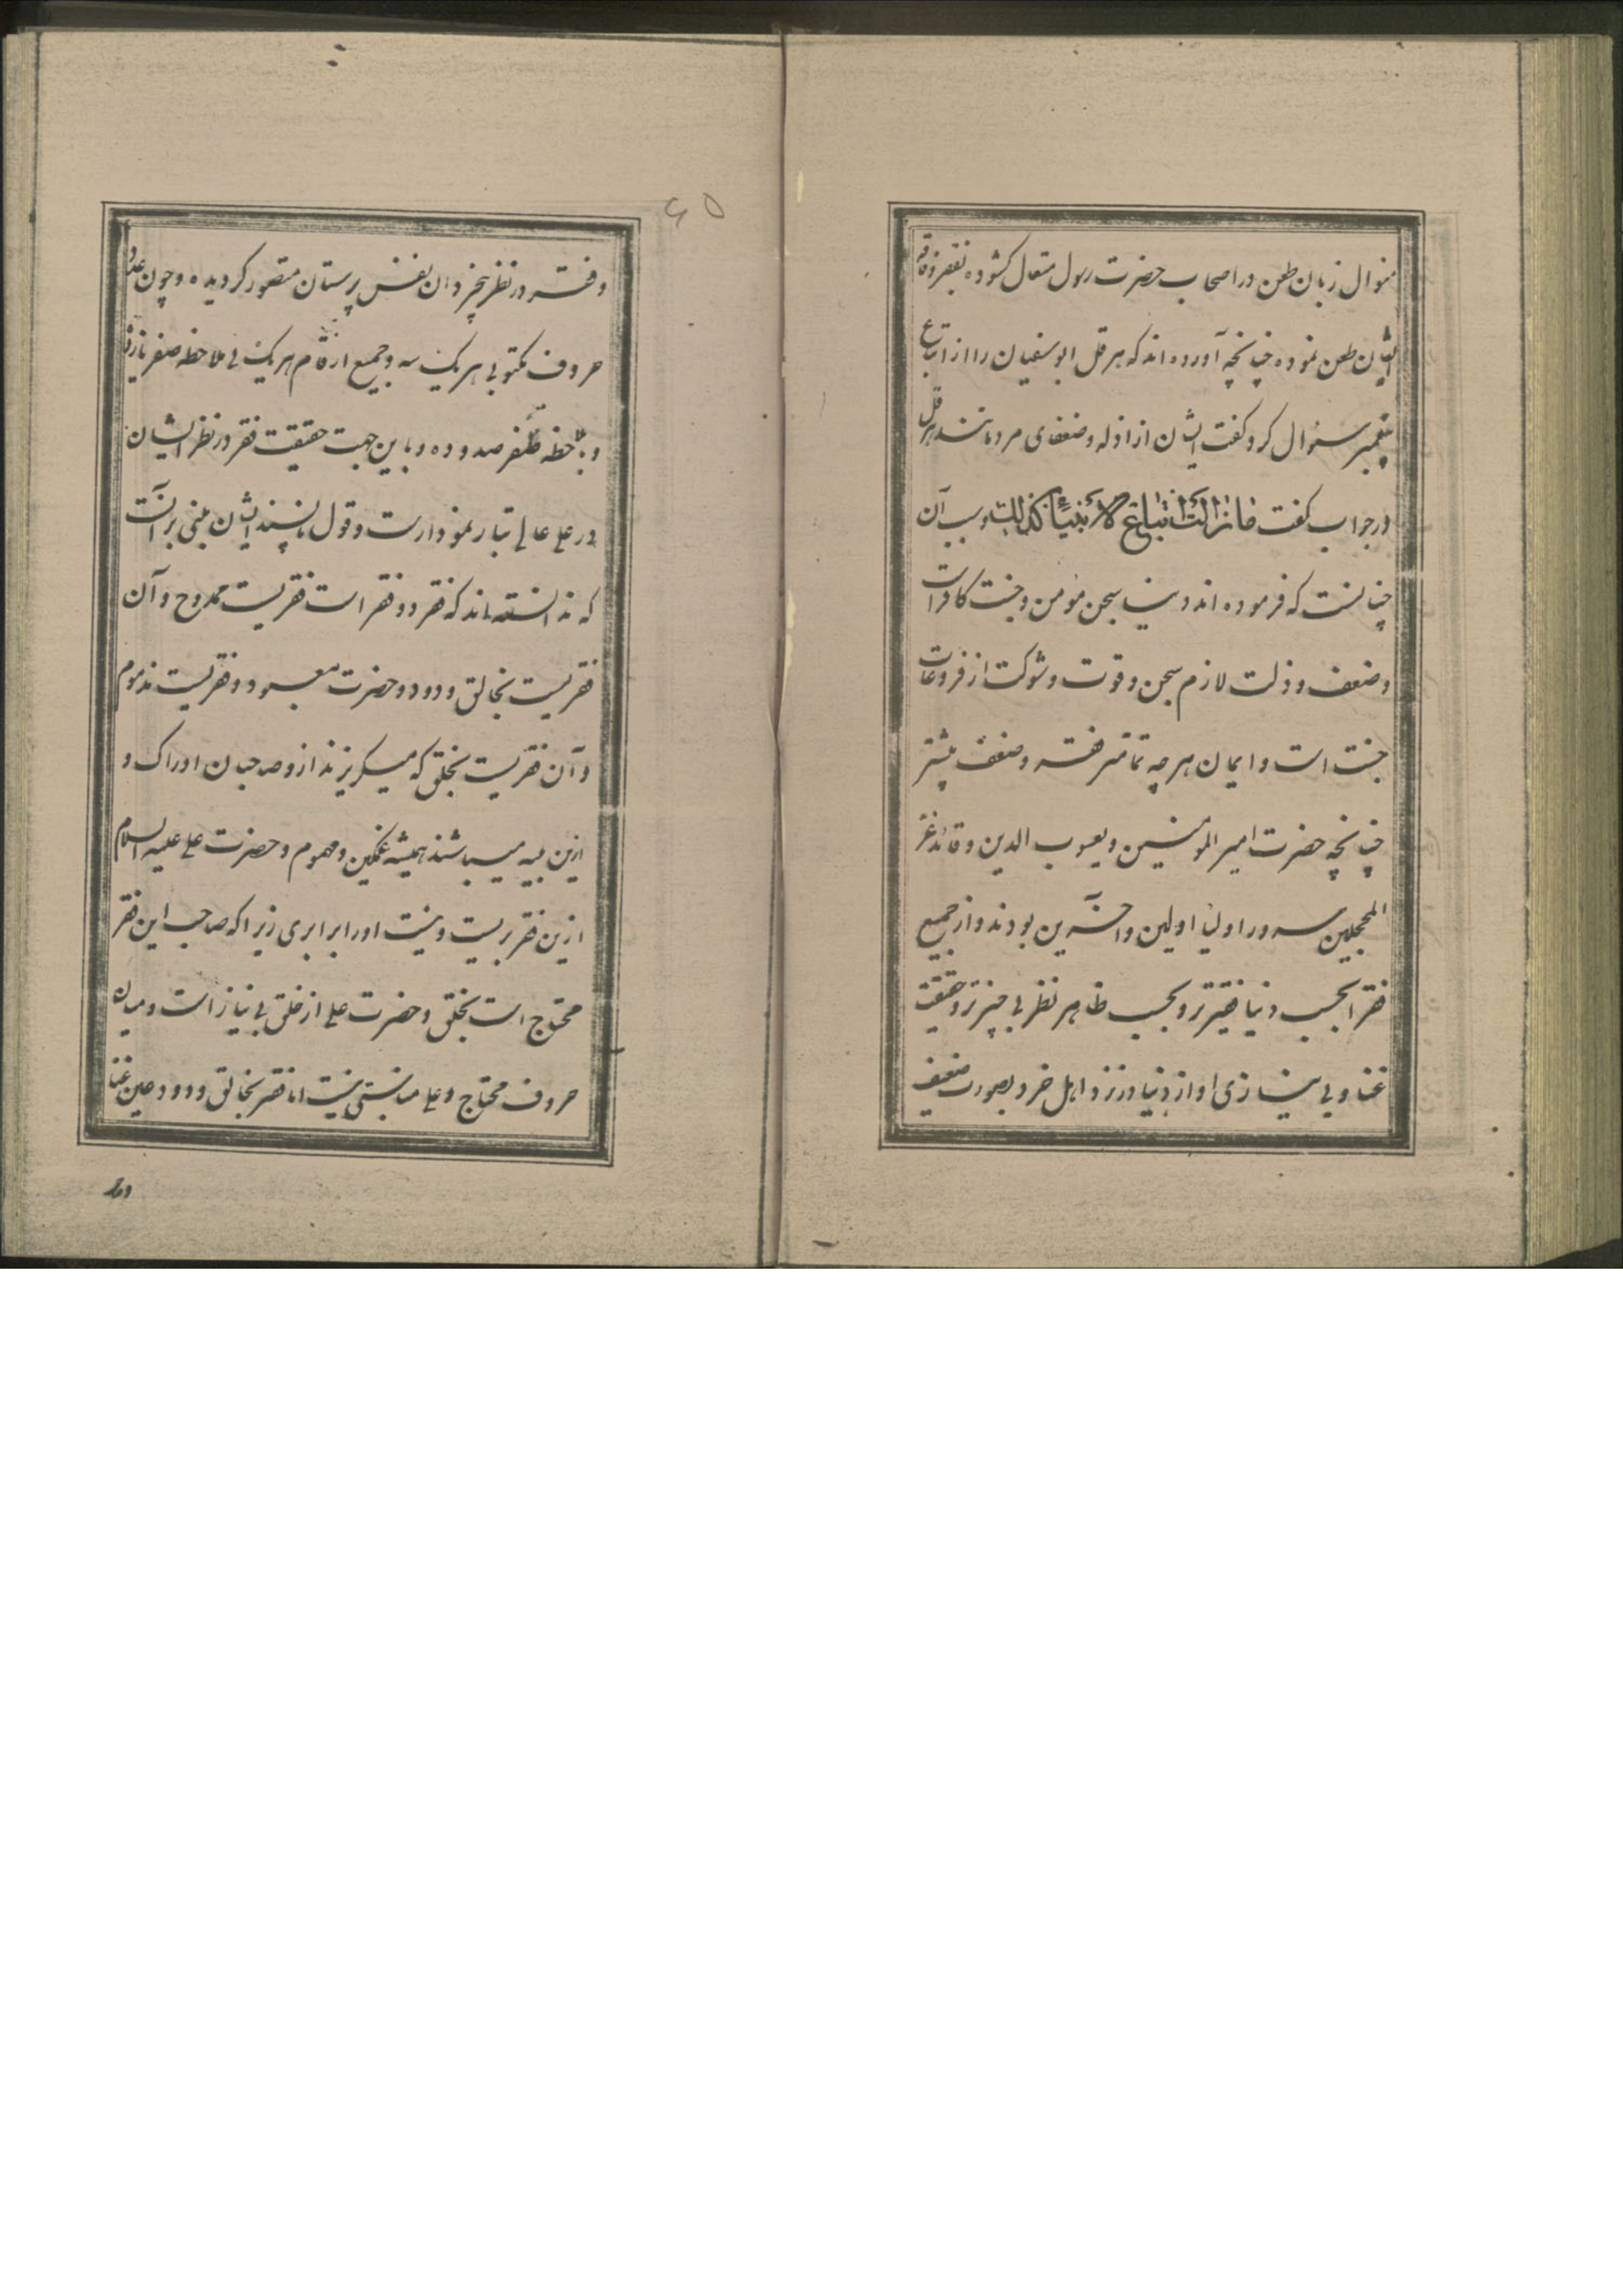 منوال زبان طعن در اصحاب حضرت رسول متعال کشوده بفقر و فاقه
ایشان طعن نموده چنانچه آورده اند که هرقل ابوسفیان را از اتباع
پیغمبر سئوال کرد گفت ایشان از اذله و ضعفای مردمانند هرقل
در جواب گفت مازالت اتباع الانبیاء کذلک و سبب آن
چنانست که فرموده اند دنیا سجن مؤمن و جنت کافر است
و ضعف و ذلت لازم سجن و قوت و شوکت از فروعات
جنت است و ایمان هر چه تمامتر فقر و ضعف بیشتر
چنانچه حضرت امیر المومنین و یعسوب الدین و قائد غر
المحجلین سرور اولیا اولین و آخرین بودند و از جمیع
فقرا بحسب دنیا فقیرتر و بحسب ظاهر نظر بی چیزتر و حقیقت
غنا و بی نیازی او از دنیا در نزد اهل خرد بصورت ضعیف
۶۵
و فقر در نظر بیخردان نفس پرستان متصور کردیده و چون عدد
حروف مکتوبی هر یک سه و جمیع ارقام هر یک بی ملاحظه صفر یازده
و بملاحظه صفر صد و ده و باین جهت حقیقت فقر در نظر ایشان
در علی عالی تبار نمودارست و قول ناپسند ایشان مبنی بر آنست
که ندانسته اند که فقر دو فقر است فقریست ممدوح و آن
فقریست بخالق ودود و حضرت معبود و فقریست مذموم
و آن فقریست بخلق که میگریزند از و صاحبان ادراک و
ازین میباشند همیشه غمگین و مهموم و حضرت علی علیه السلام
ازین فقر بریست و نیست او را برابری زیرا که صاحب این فقر
محتاج است بخلق و حضرت علی از خلق بی نیاز است و میان
حروف محتاج و علی مناسبتی نیست اما فقر بخالق ودود عین غنا